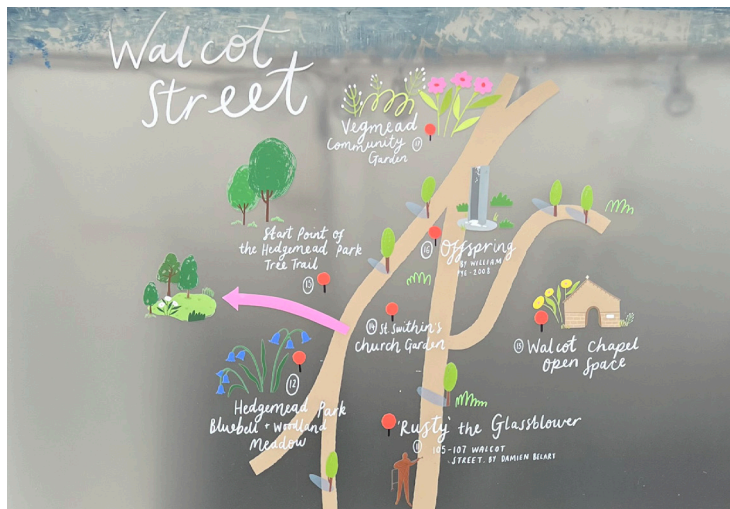 Walcot
Street
Vegmead
Community
Garden
17
Start Point of
the Hedgemead Park
Tree Trail
16
Offspring
BY WILLIAM
14 St Swithin's
Church Garden
Walcot Chapel
Open Space
12
Hedgemead Park
Bluebell + Woodland
Meadow
'Rusty' the Glassblower
11
105-107 WALCOT
STREET. BY DAMIEN BELART